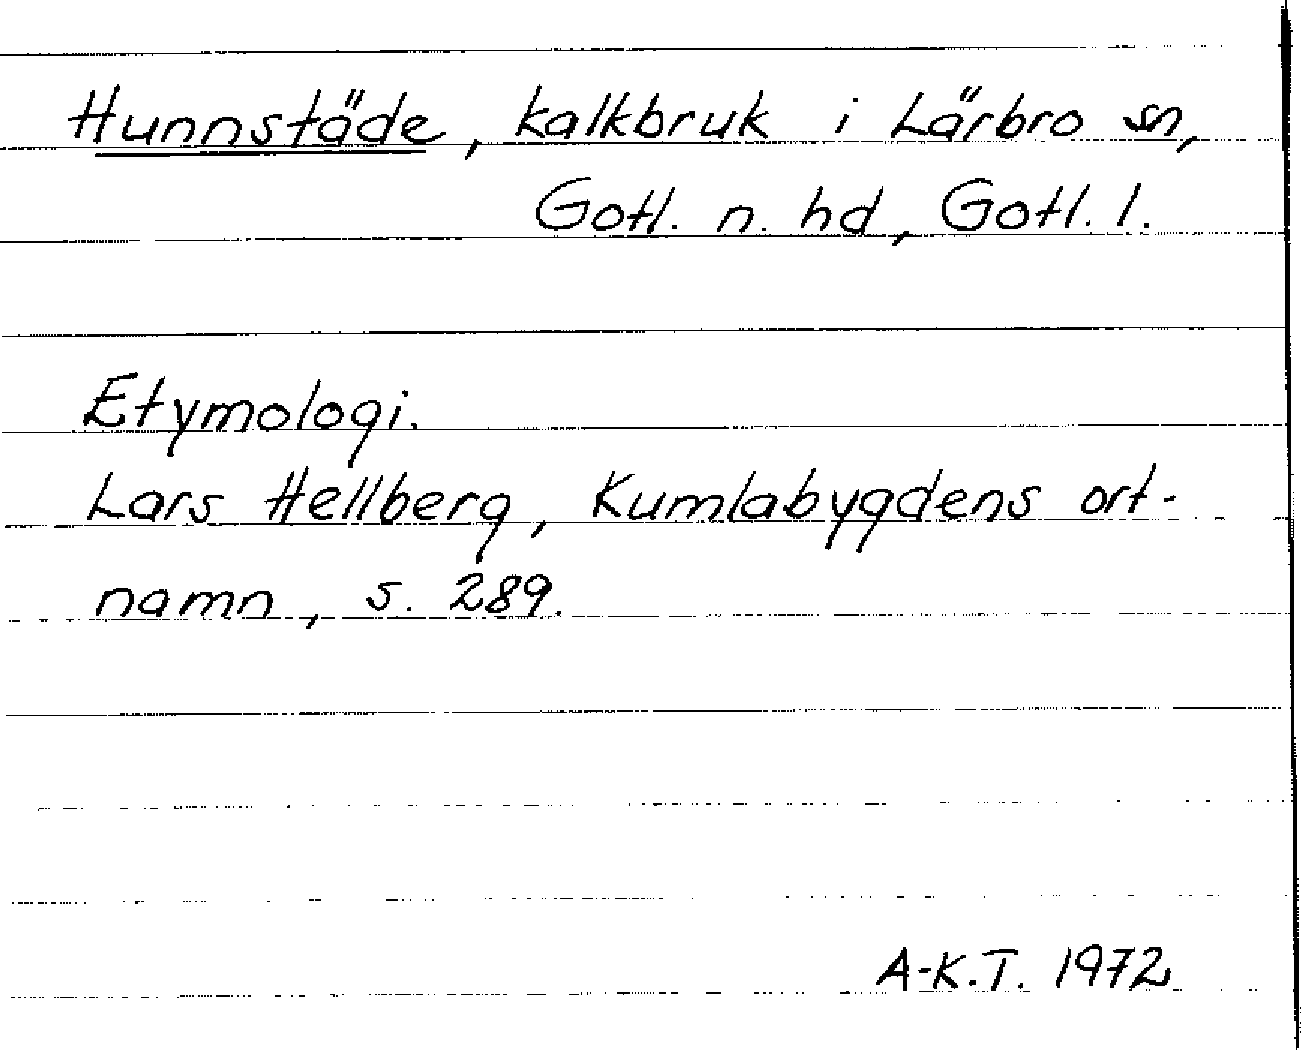 Hunnstäde, kalkbruk i Lärbro sn,
Gotl. n. hd, Gotl. l.
Etymologi.
Lars Hellberg, Kumlabygdens ort-
namn, s. 289.
A-K.T. 1972